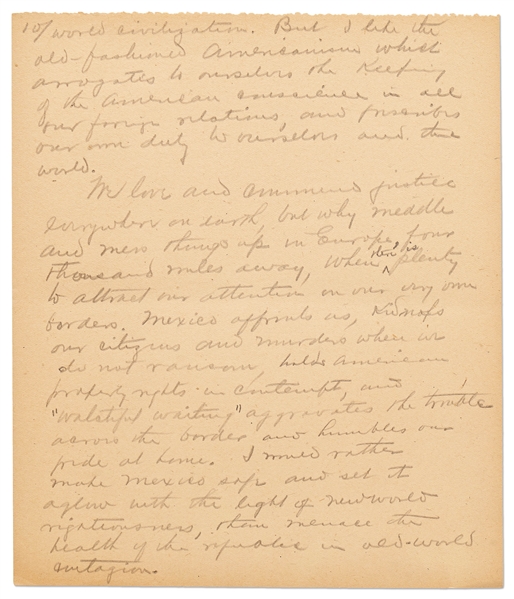 10/ world civilization. But I like the
old-fashioned Americanism which
arrogates to ourselves the keeping
of the American conscience in all
our foreign relations, and prescribes
our own duty to ourselves and the
world.
We love and commend justice
everywhere on earth, but why meddle
and mess things up in Europe, four
thousand miles away, when there is plenty
to attract our attention on our very own
borders. Mexico affronts us, kidnaps
our citizens and murders where we
do not ransom, holds American
property rights in contempt, and
"watchful waiting" aggravates the trouble
across the border and humbles our
pride at home. I would rather
make Mexico safe and set it
aglow with the light of new world
righteousness, than menace the
health of the republic in old-world
contagion.